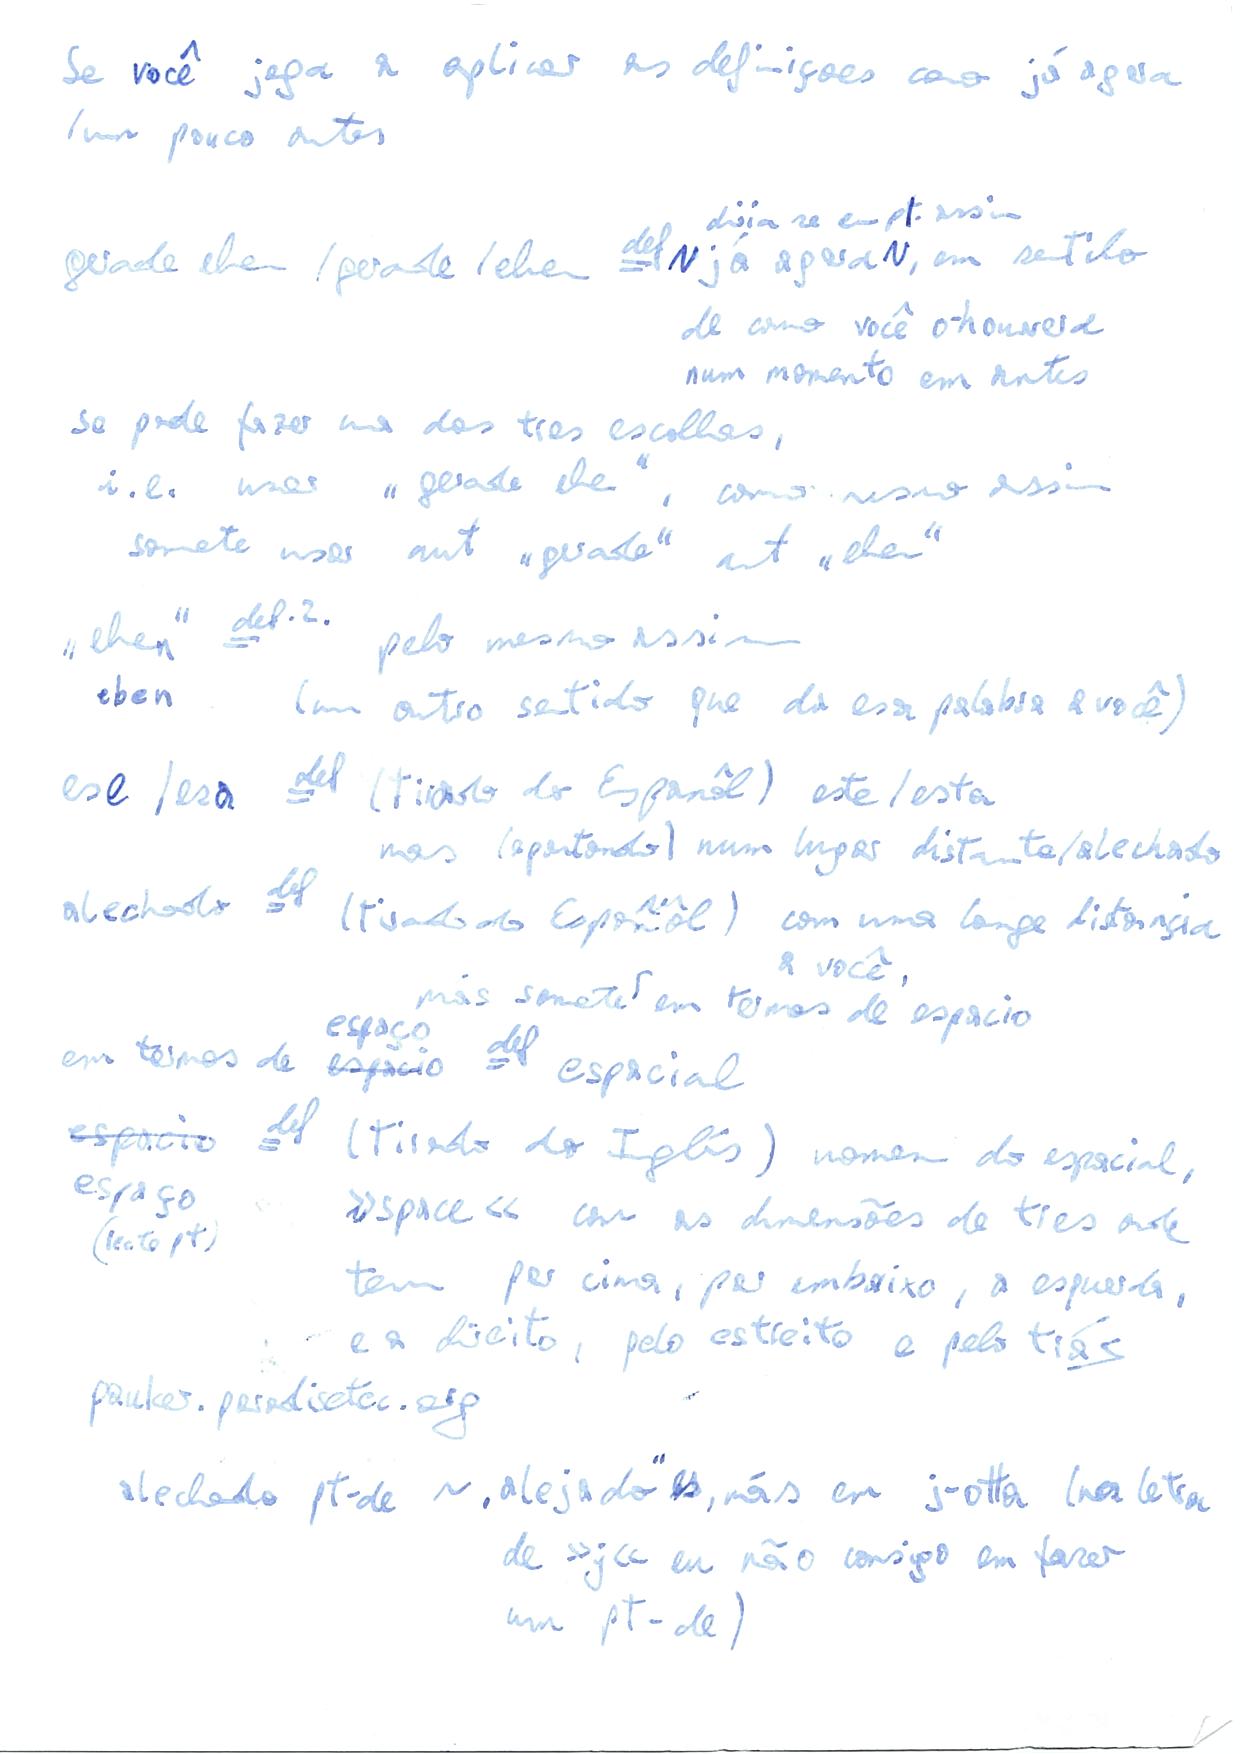 Se você joga a aplicar as definições como já agora
/um pouco antes
diria se em pt. assim
gerade eben /gerade /eben =def N já agora N, em sentido
de como você o houvera
num momento em antes
se pode fazer uma das tres escolhas,
i.e. usar „gerade eben“, como mesmo assim
somete usar aut „gerade“ aut „eben“
„eben“ =def.2. pelo mesmo assim
eben (um outro sentido que da esa palabra a você)
ese /esa =def (Tirado do Español) este/esta
mas (apontando) num lugar distante/alechado
alechado =def (Tirado do Español) com uma longe distançia
a você,
más somete em termos de espacio
espaço
em termos de espacio =def espacial
espacio =def (Tirado do Inglés) nomen do espacial,
espaço »space« con as dimensões de tres onde
(recto pt)
tem por cima, por embaixo, a esquerda,
e a direito, pelo estreito e pelo trás
pauker.paradisetec.org
alechado pt-de ~ „alejado“, más em j-otta (na letra
de »j« eu não consigo em fazer
um pt-de)